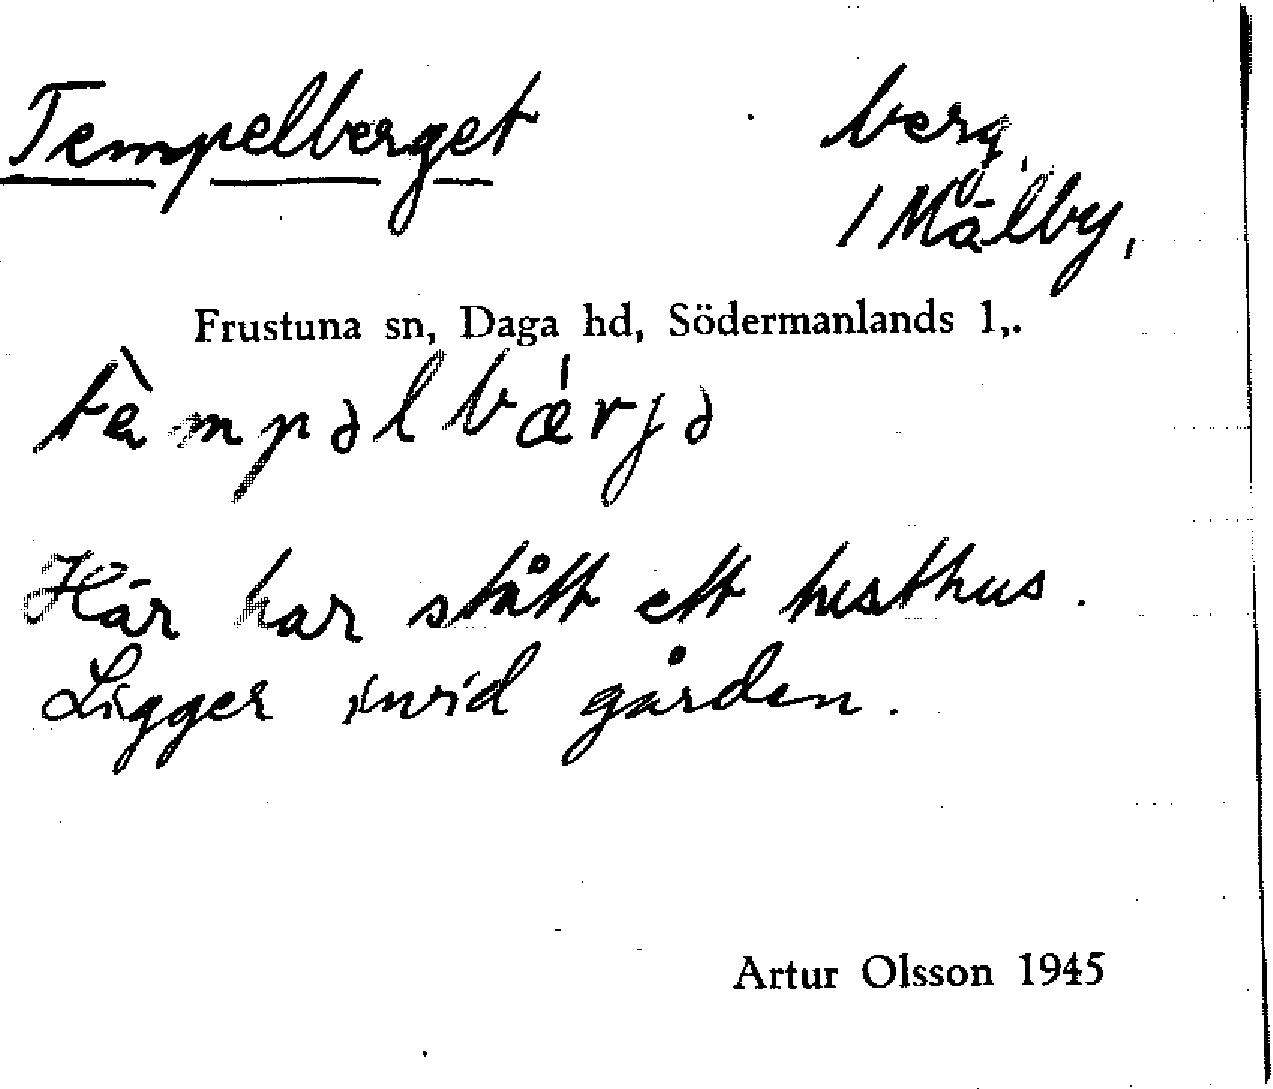 Tempelberget berg,
/ Mälby,
Frustuna sn, Daga hd, Södermanlands l,.
tè̀mpəlbæ̍rjə
Här har stått ett lusthus.
Ligger invid gården.
Artur Olsson 1945